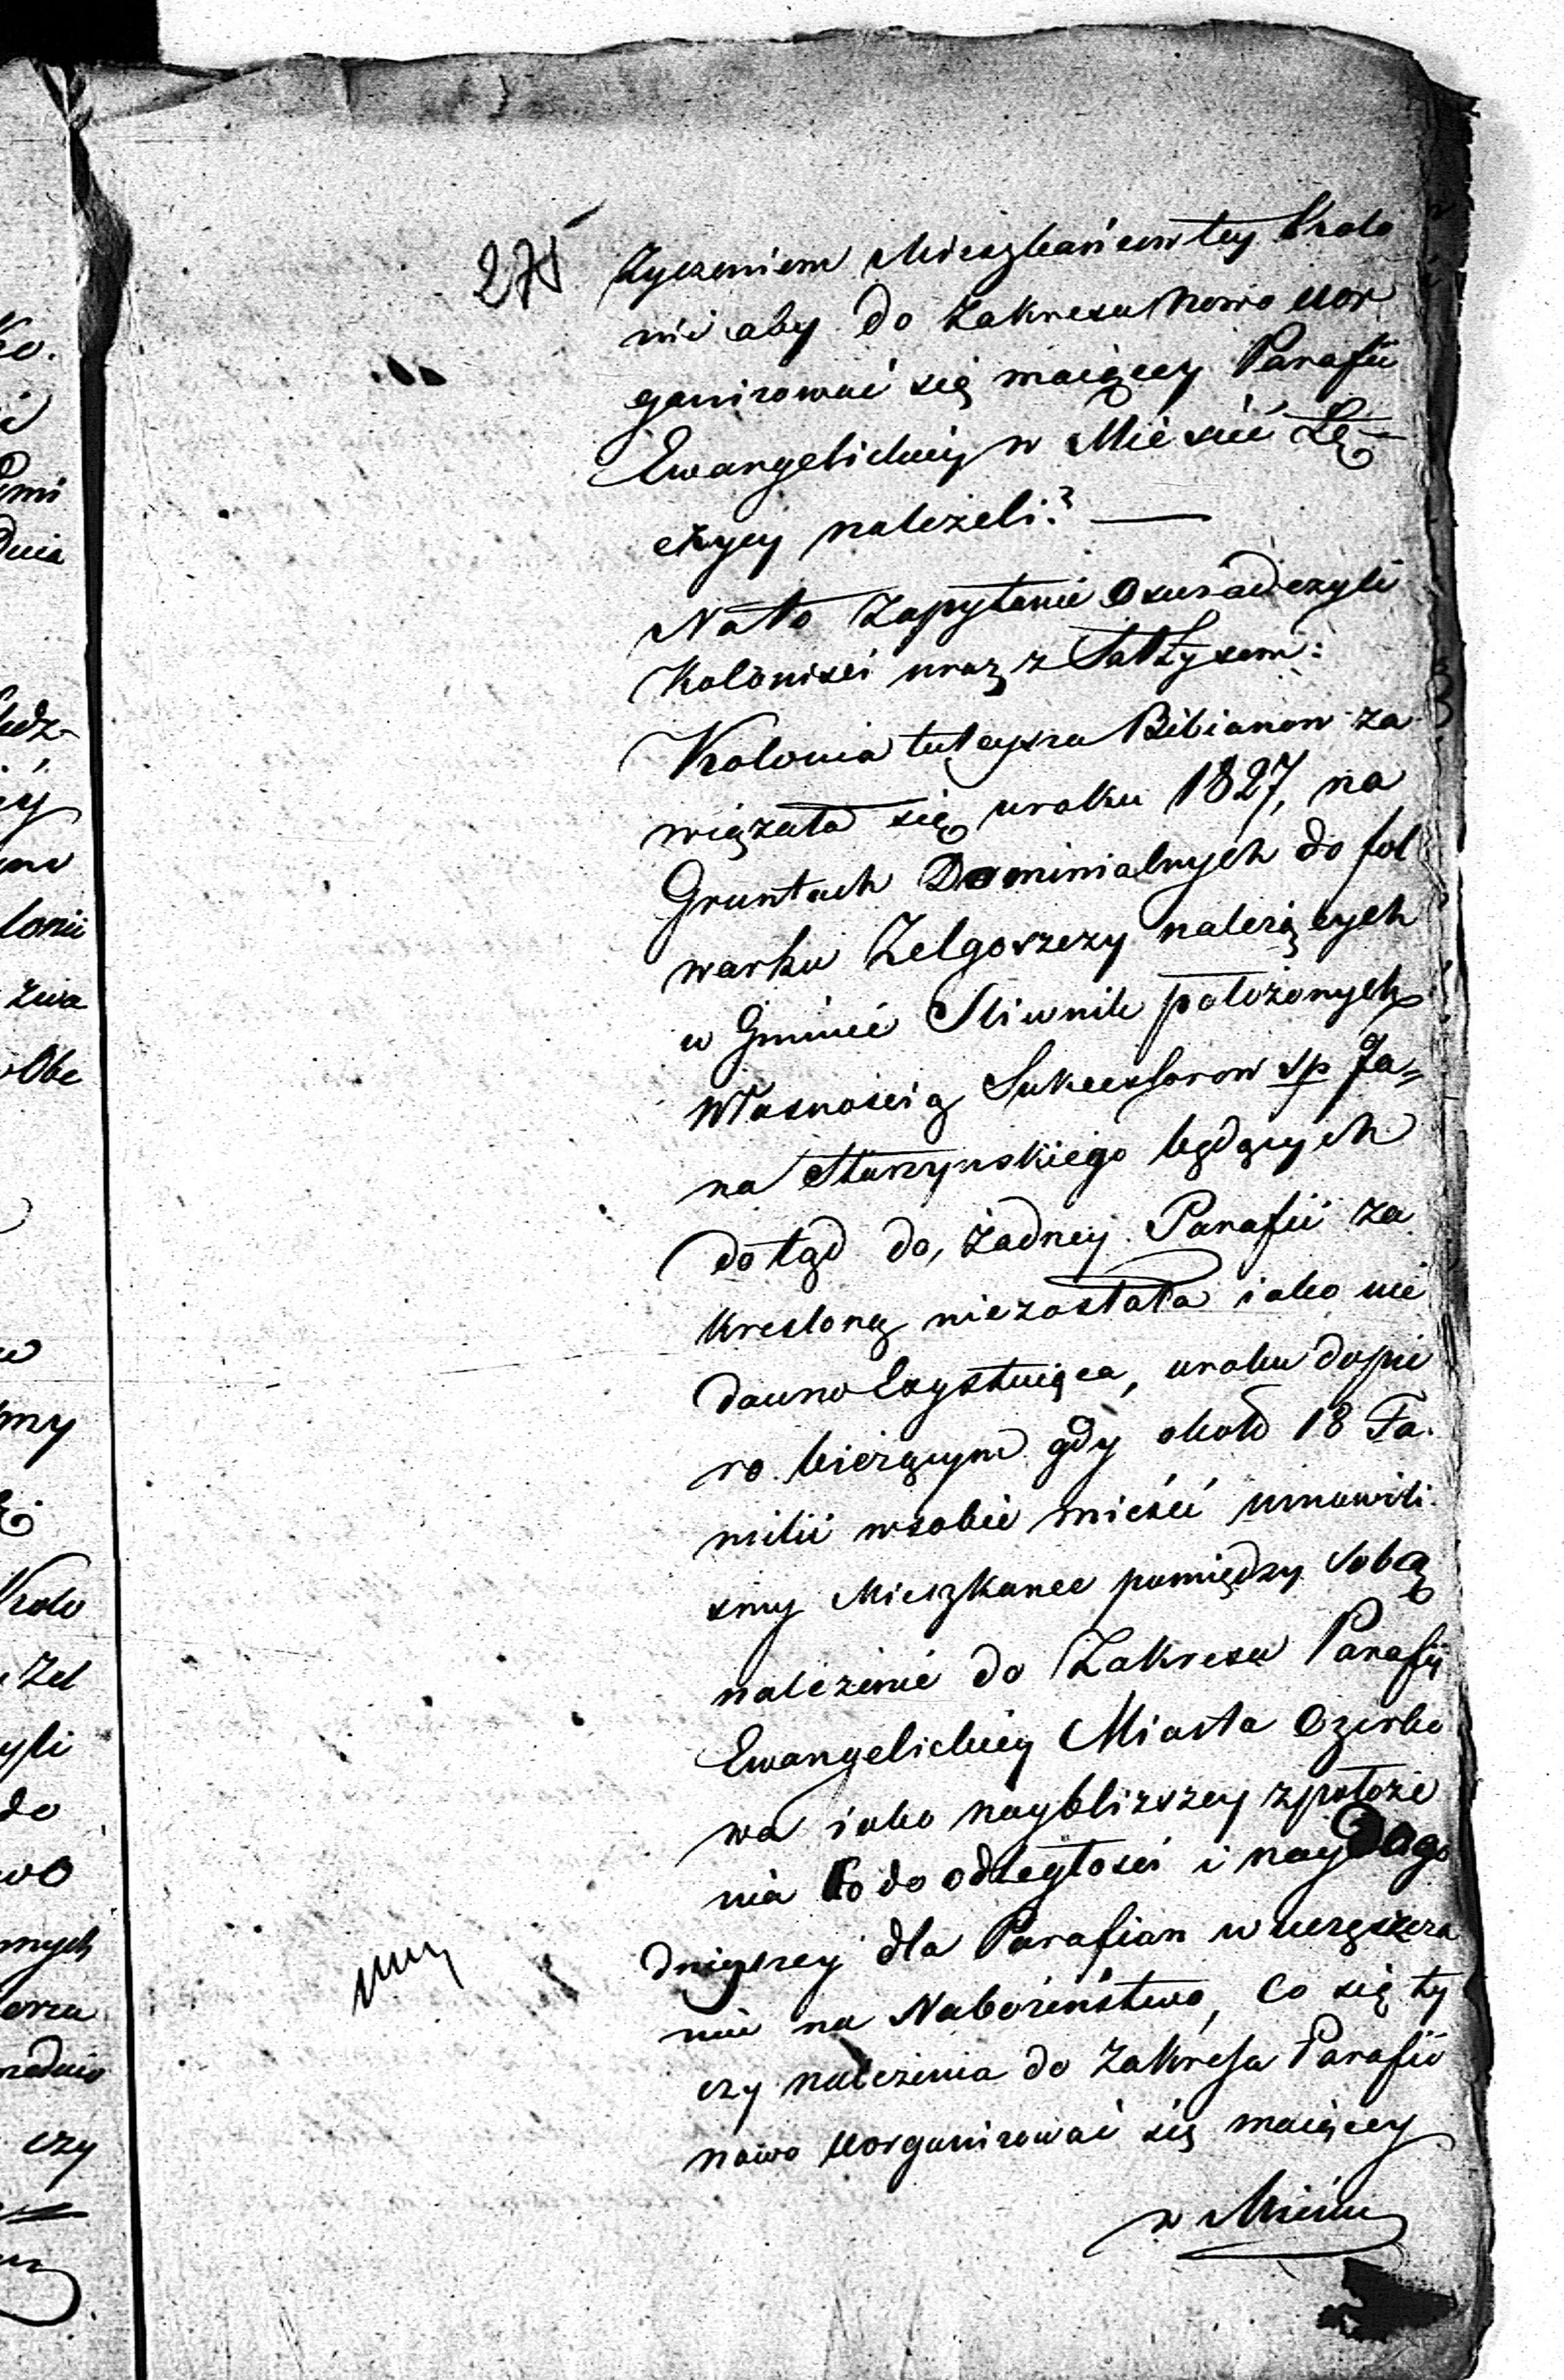 275
Zyczeniem Mieszkańcow tey Kolo
nii aby do Zakresu nowo uor
ganizować się maiącey Parafii
Ewangelickiey w Mieście Łę-
czycy należeli? —
Na to Zapytanie Oswiadczyli
Koloniści wraz z Sołtysem:
Kolonia tuteysza Bibianow za
wiązała się wroku 1827, na
Gruntach Dominialnych do fol
warku Zelgoszczy należących
w Gminie Sliwnik położonych
Własnością Sukcessorow sp Ja=
na Starzynskiego będących
dotąd do, żadney Parafii za
kresloną niezostała iako nie
dawno Exystuiąca, wroku dopie
ro bieżącym gdy około 18 Fa.
milii wsobie mieści umowili
smy Mieszkance pomiędzy sobą
należenie do Zakresu Parafii
Ewangelickiey Miasta Ozorko
wa iako naybliższey zpołoże
nia Co do odległości i naydogo
dnieyszey dla Parafian w uczęszcza
niu na Nabożeństwo, Co się ty
czy należenia do Zakresu Parafii
nowo uorganizować się maiącey
w Mieście
ko.
ymi
Dnia
ludz-
lonii
zwa
Obe
my
Kolo
Zel
yli
do
wo
mych
czy